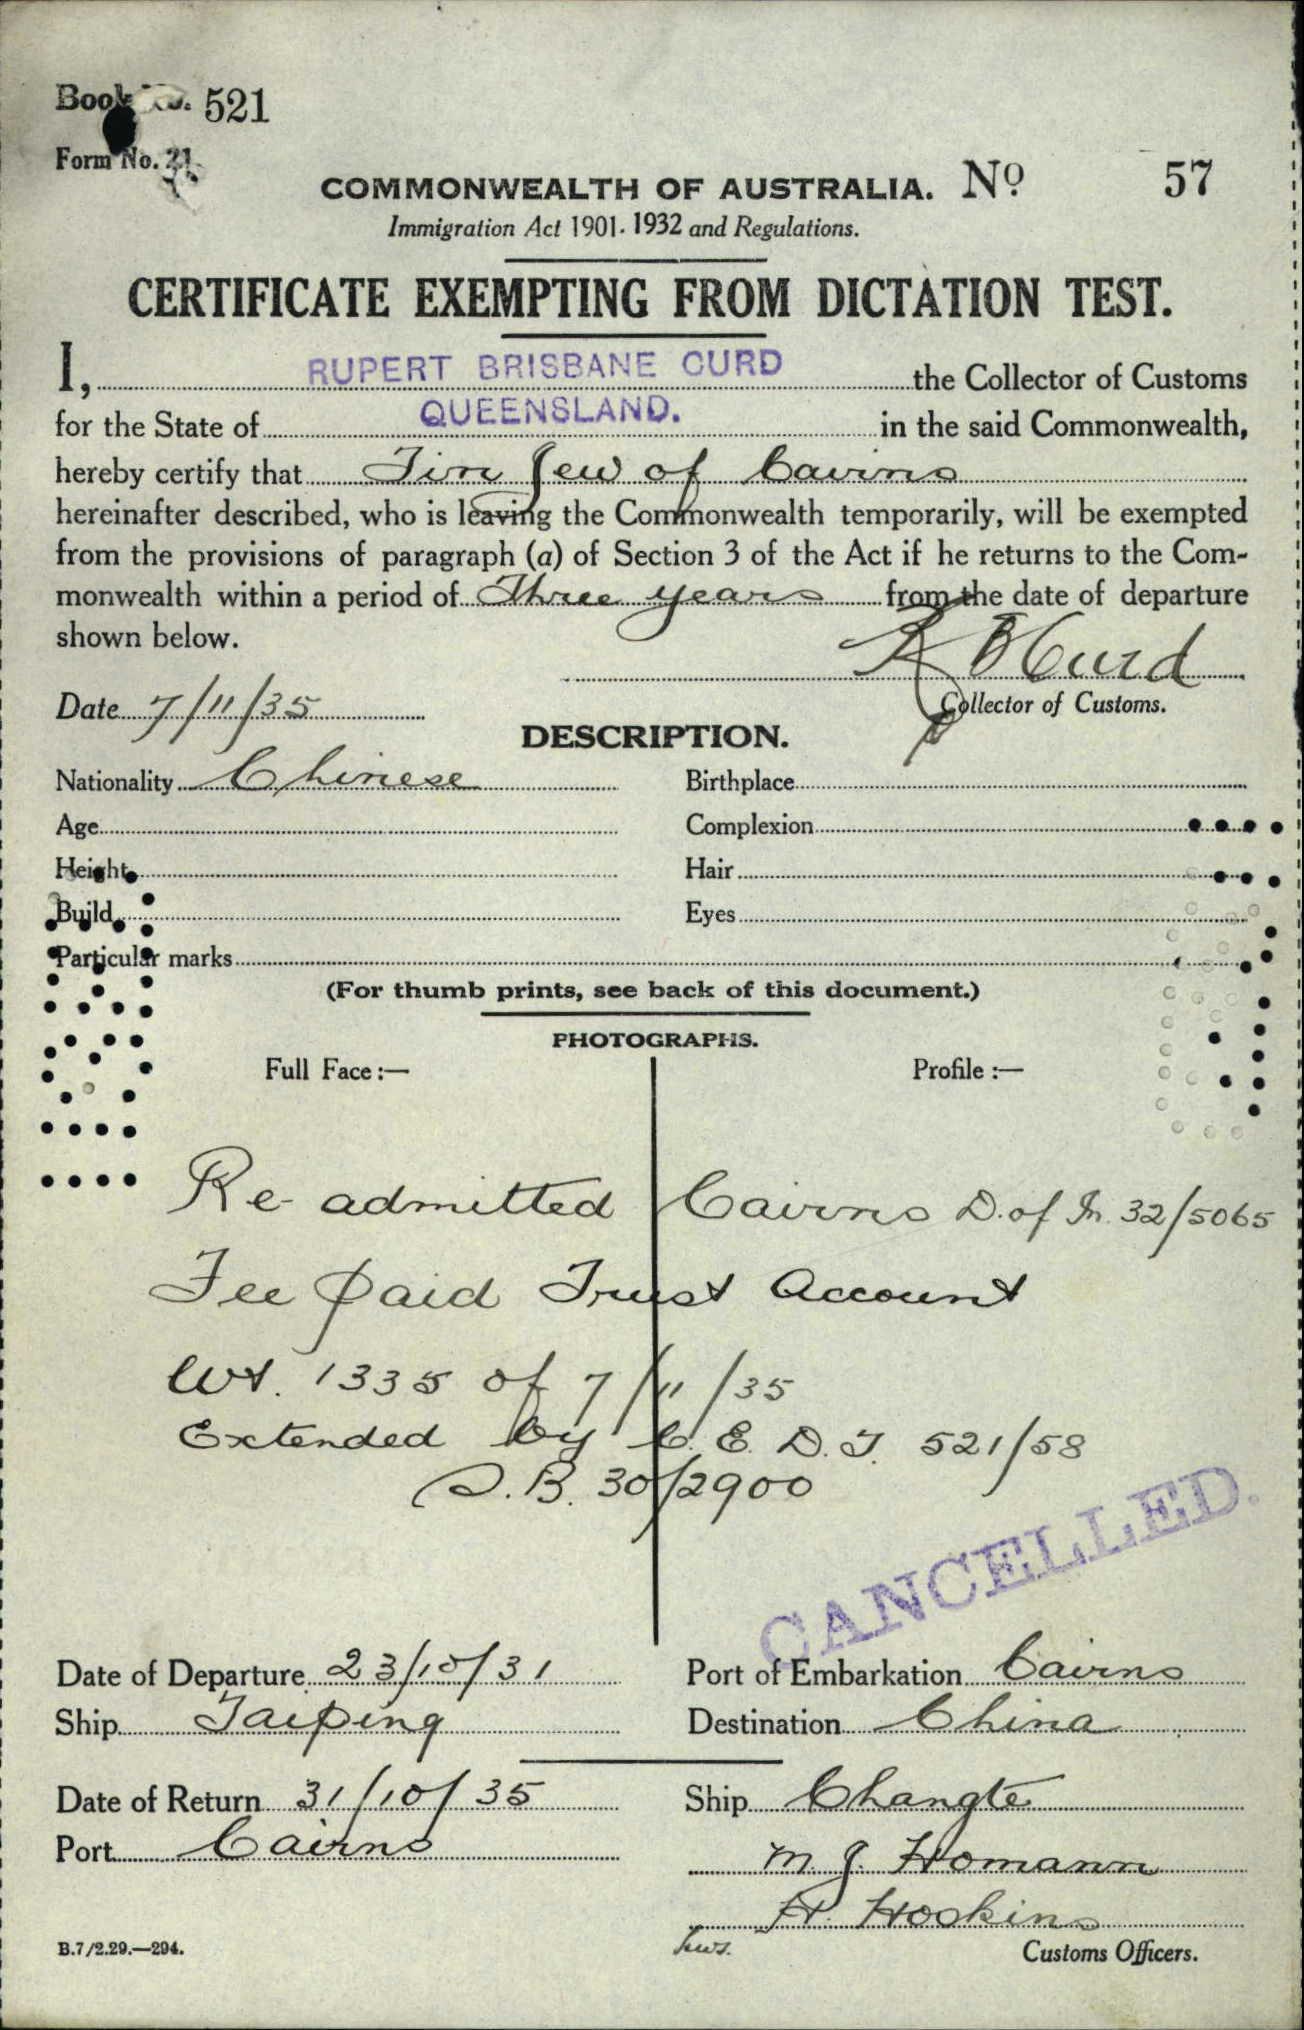 Book No. 521
Form No. 21.
COMMONWEALTH OF AUSTRALIA. No 57
Immigration Act 1901-1932 and Regulations.
CERTIFICATE EXEMPTING FROM DICTATION TEST.
I, RUPERT BRISBANE CURD the Collector of Customs
for the State of QUEENSLAND. in the said Commonwealth,
hereby certify that Tim Jew of Cairns
hereinafter described, who is leaving the Commonwealth temporarily, will be exempted
from the provisions of paragraph (a) of Section 3 of the Act if he returns to the Com-
monwealth within a period of Three years from the date of departure
shown below.
R B Curd
Date 7/11/35 Collector of Customs.
DESCRIPTION.
Nationality Chinese Birthplace
Age Complexion
Height Hair
Build Eyes
Particular marks
(For thumb prints, see back of this document.)
PHOTOGRAPHS.
Full Face :— Profile :—
Re-admitted Cairns D. of In. 32/5065
Fee paid Trust Account
Wt. 1335 of 7/11/35
Extended by C. E. D. T. 521/58
S.B. 30/2900
CANCELLED.
Date of Departure 23/10/31 Port of Embarkation Cairns
Ship Taiping Destination China
Date of Return 31/10/35 Ship Changte
Port Cairns M. J. Homann
H. Hoskins
B.7/2.29.—294. Customs Officers.